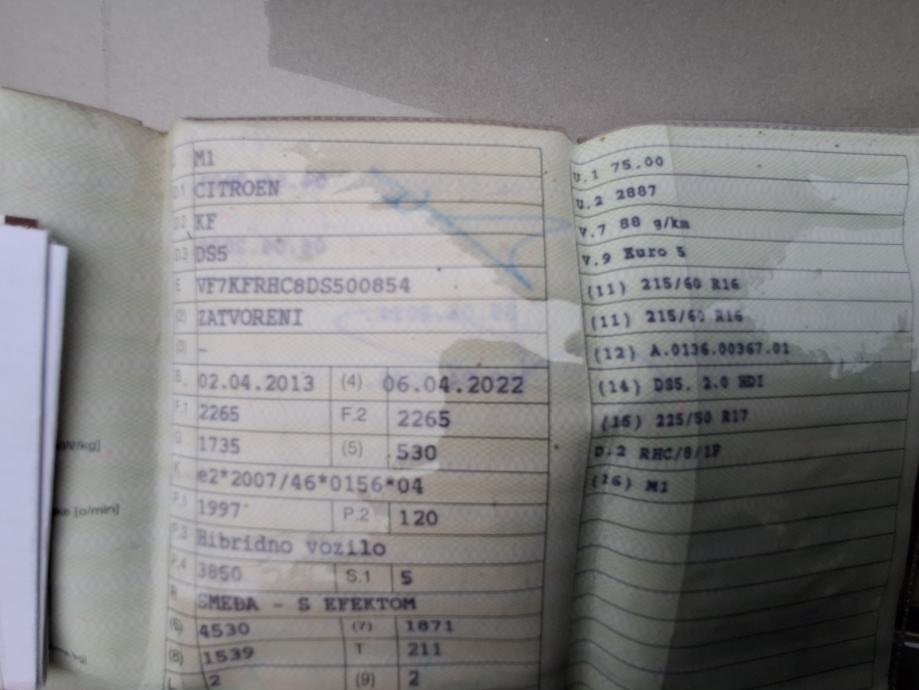 M1
D.1 CITROEN
D.2 KF
D.3 DS5
E VF7KFRHC8DS500854
(2) ZATVORENI
(3) -
B 02.04.2013 (4) 06.04.2022
F.1 2265 F.2 2265
G 1735 (5) 530
K e2*2007/46*0156*04
P.1 1997 P.2 120
P.3 Hibridno vozilo
P.4 3850 S.1 5
R SMEĐA - S EFEKTOM
(6) 4530 (7) 1871
(8) 1539 T 211
L 2 (9) 2
U.1 75.00
U.2 2887
V.7 88 g/km
V.9 Euro 5
(11) 215/60 R16
(11) 215/60 R16
(12) A.0136.00367.01
(14) DS5, 2.0 HDI
(15) 225/50 R17
D.2 RHC/8/1P
(16) M1
[o/min]